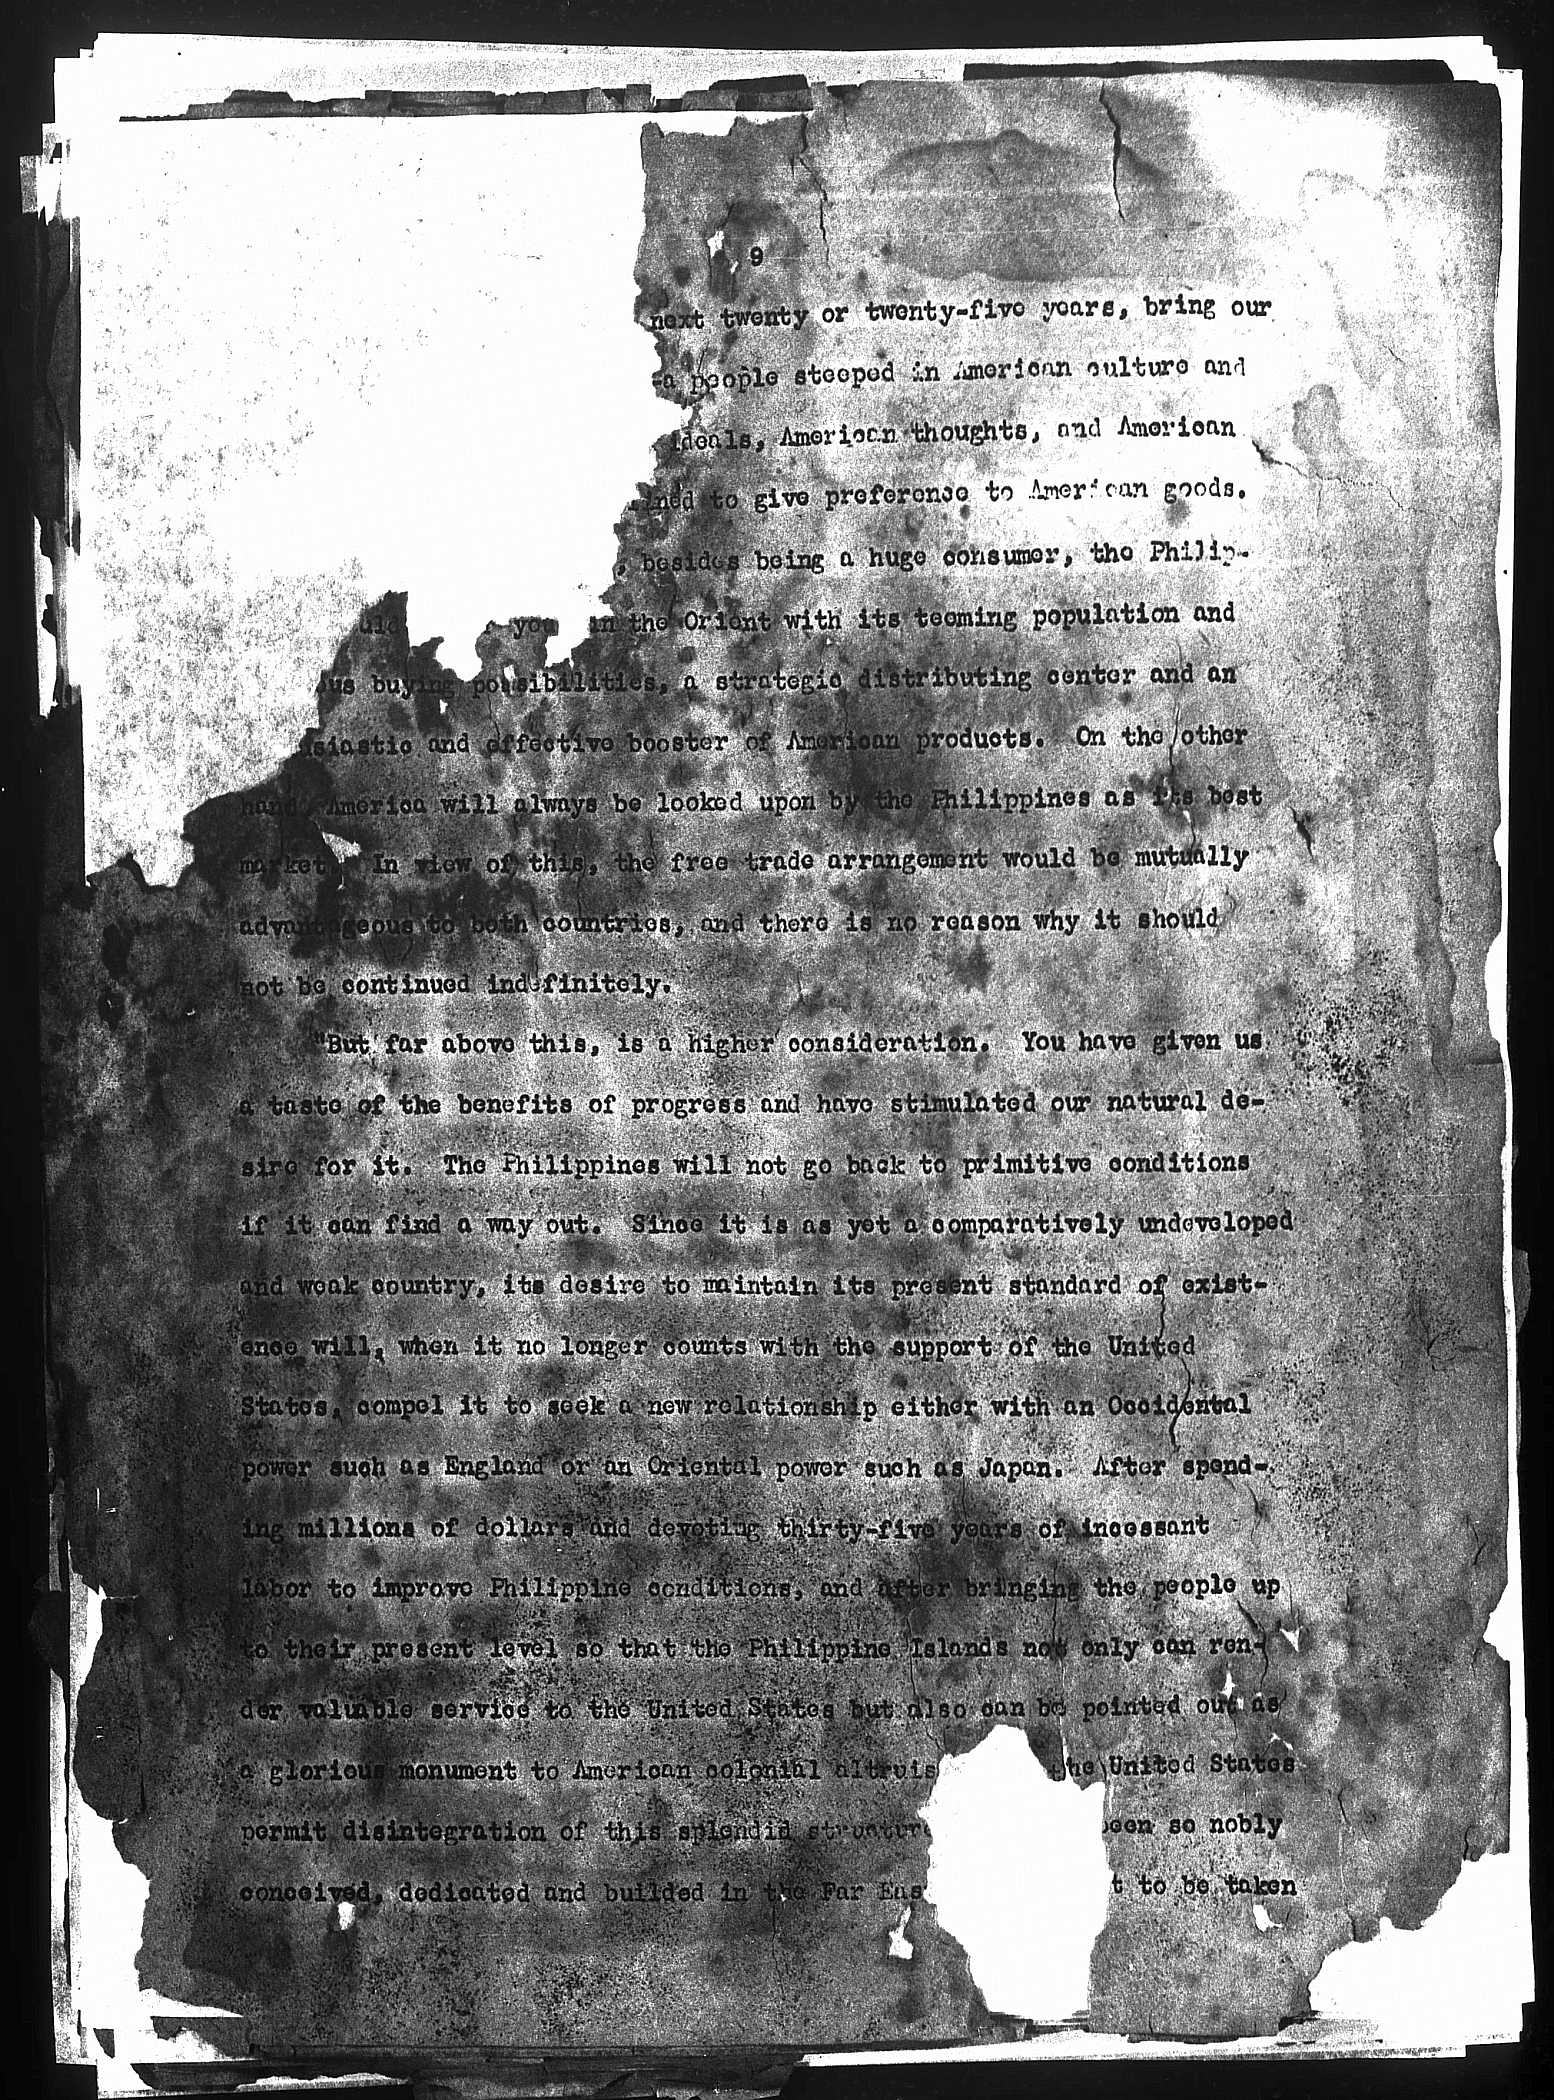 9
next twenty or twenty-five years, bring our
-a people steeped in American culture and
ideals, American thoughts, and American
ined to give preference to American goods.
, besides being a huge consumer, the Philip-
you in the Orient with its teeming population and
us buying possibilities, a strategic distributing center and an
siastic and effective booster of American products. On the other
hand, America will always be looked upon by the Philippines as its best
market. In view of this, the free trade arrangement would be mutually
advantageous to both countries, and there is no reason why it should
not be continued indefinitely.
"But far above this, is a higher consideration. You have given us
a taste of the benefits of progress and have stimulated our natural de-
sire for it. The Philippines will not go back to primitive conditions
if it can find a way out. Since it is as yet a comparatively undeveloped
and weak country, its desire to maintain its present standard of exist-
ence will, when it no longer counts with the support of the United
States, compel it to seek a new relationship either with an Occidental
power such as England or an Oriental power such as Japan. After spend-
ing millions of dollars and devoting thirty-five years of incessant
labor to improve Philippine conditions, and after bringing the people up
to their present level so that the Philippine Islands not only can ren-
der valuable service to the United States but also can be pointed out as
a glorious monument to American colonial altruis the United States
permit disintegration of this splendid structure been so nobly
conceived, dedicated and builded in the Far Eas t to be taken